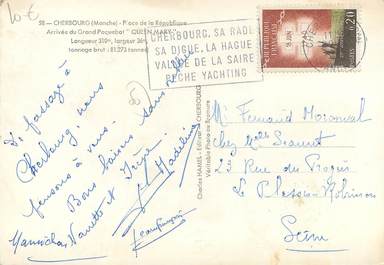 10€
98 - CHERBOURG (Manche) - Place de la République
Arrivée du Grand Paquebot "QUEEN MARY"
Longueur 310m, largeur 36m
tonnage brut : 81.273 tonnes
CHERBOURG, SA RADE
SA DIGUE, LA HAGUE
VALLÉE DE LA SAIRE
PECHE YACHTING
REPUBLIQUE FRANÇAISE
18 JUIN
0,20
POSTES
Charles HAMEL - Editeur - CHERBOURG
Véritable Photo de
De passage à
Cherbourg, nous
pensons à vous.
Bons baisers sans
Madeleine
Nanette et
Jean François
Mr Fernand
chez Melle Jeannet
23 Rue du
Le Plessis-Robinson
Seine